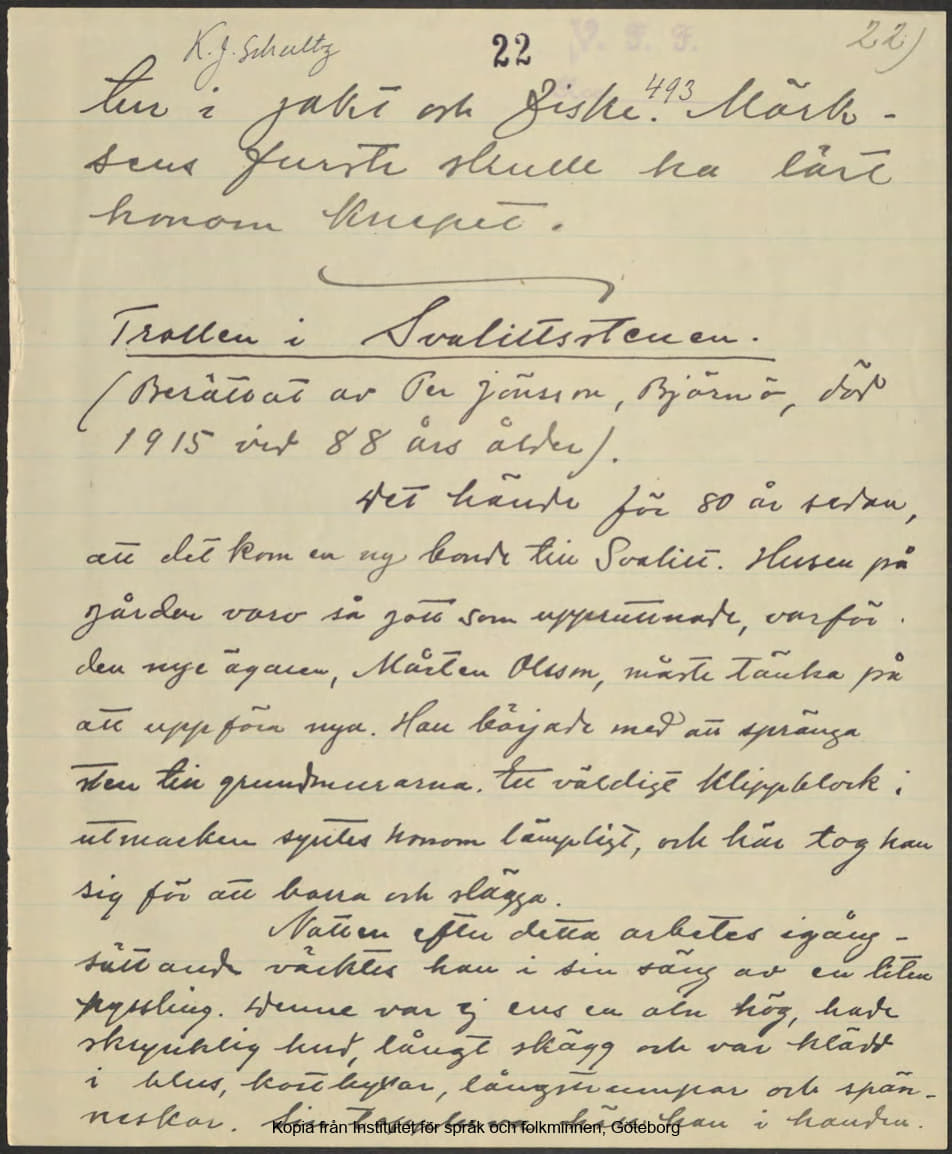 K. J. Schultz
22
V. F. F.
22)
ten i jakt och fiske. 493 Mörk-
sens furste skulle ha lärt
honom knepet.
Trollen i Svalittsstenen.
(Berättat av Per Jönsson, Björnö, död
1915 vid 88 års ålder).
Det hände för 80 år sedan,
att det kom en ny bonde till Svalitt. Husen på
gården voro så gott som uppruttnade, varför
den nye ägaren, Mårten Olsson, måste tänka på
att uppföra nya. Han började med att spränga
sten till grundmurarna. Ett väldigt klippblock i
utmarken syntes honom lämpligt, och här tog han
sig för att borra och slägga.
Natten efter detta arbetes igång-
sättande väcktes han i sin säng av en liten
pyssling. Denne var ej ens en aln hög, hade
skrynklig hud, långt skägg och var klädd
i blus, kortbyxor, långstrumpor och spän-
neskor. Sin han i handen.
Kopia från Institutet för språk och folkminnen, Göteborg